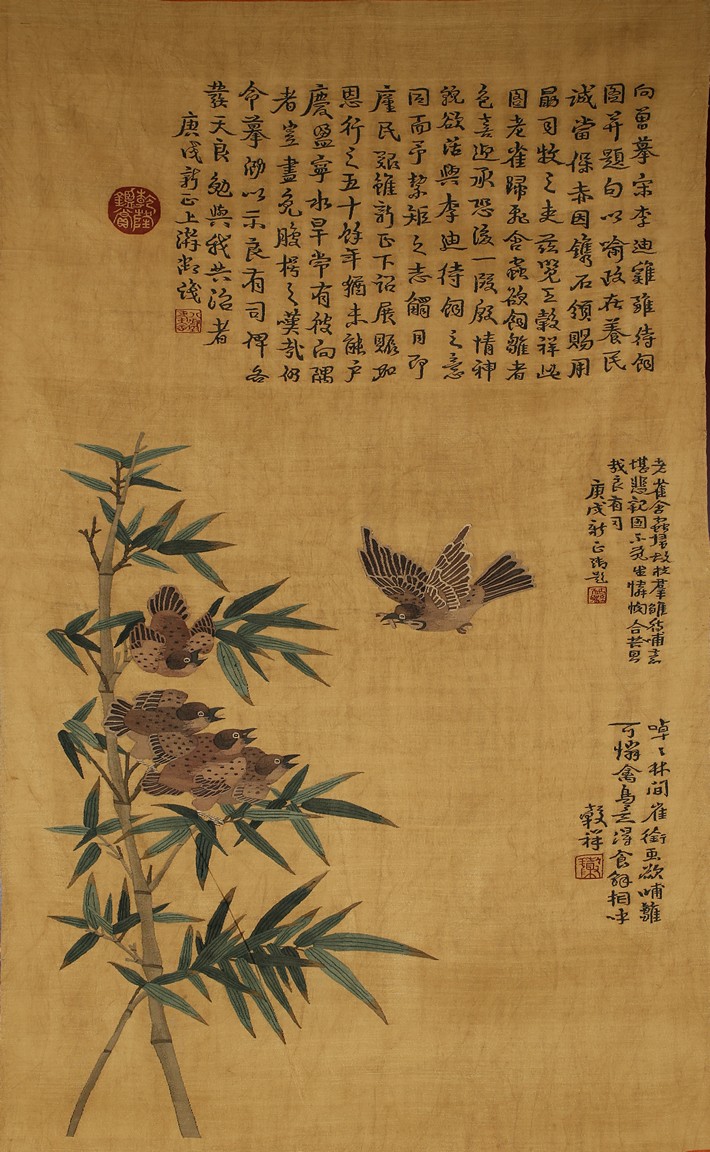 向曾摹宋李迪雞雛待飼
圖并題句以喻政在養民
誠當保赤因鐫石頒賜用
勗司牧之吏茲覽王穀祥此
圖老雀歸飛含蟲欲飼雛者
色喜迎承恐後一段殷情神
貌欲活與李迪待飼之意
同而予絜矩之志觸目即
廑民艱雖新正下詔展賑加
恩行之五十餘年猶未能戶
慶盈寧水旱常有彼向隅
者豈盡免腹枵之嘆哉仍
令摹泐以示良有司俾各
發天良勉與我共治者
庚戌新正上澣御識
乾隆鑑賞
老雀含蟲歸哺雛待哺嘉
堪悲觀圖不覺生憐恤合共思
我良有司
庚戌新正御題
啅啅林間雀銜蟲欲哺雛
可憐禽鳥意得食解相呼
穀祥